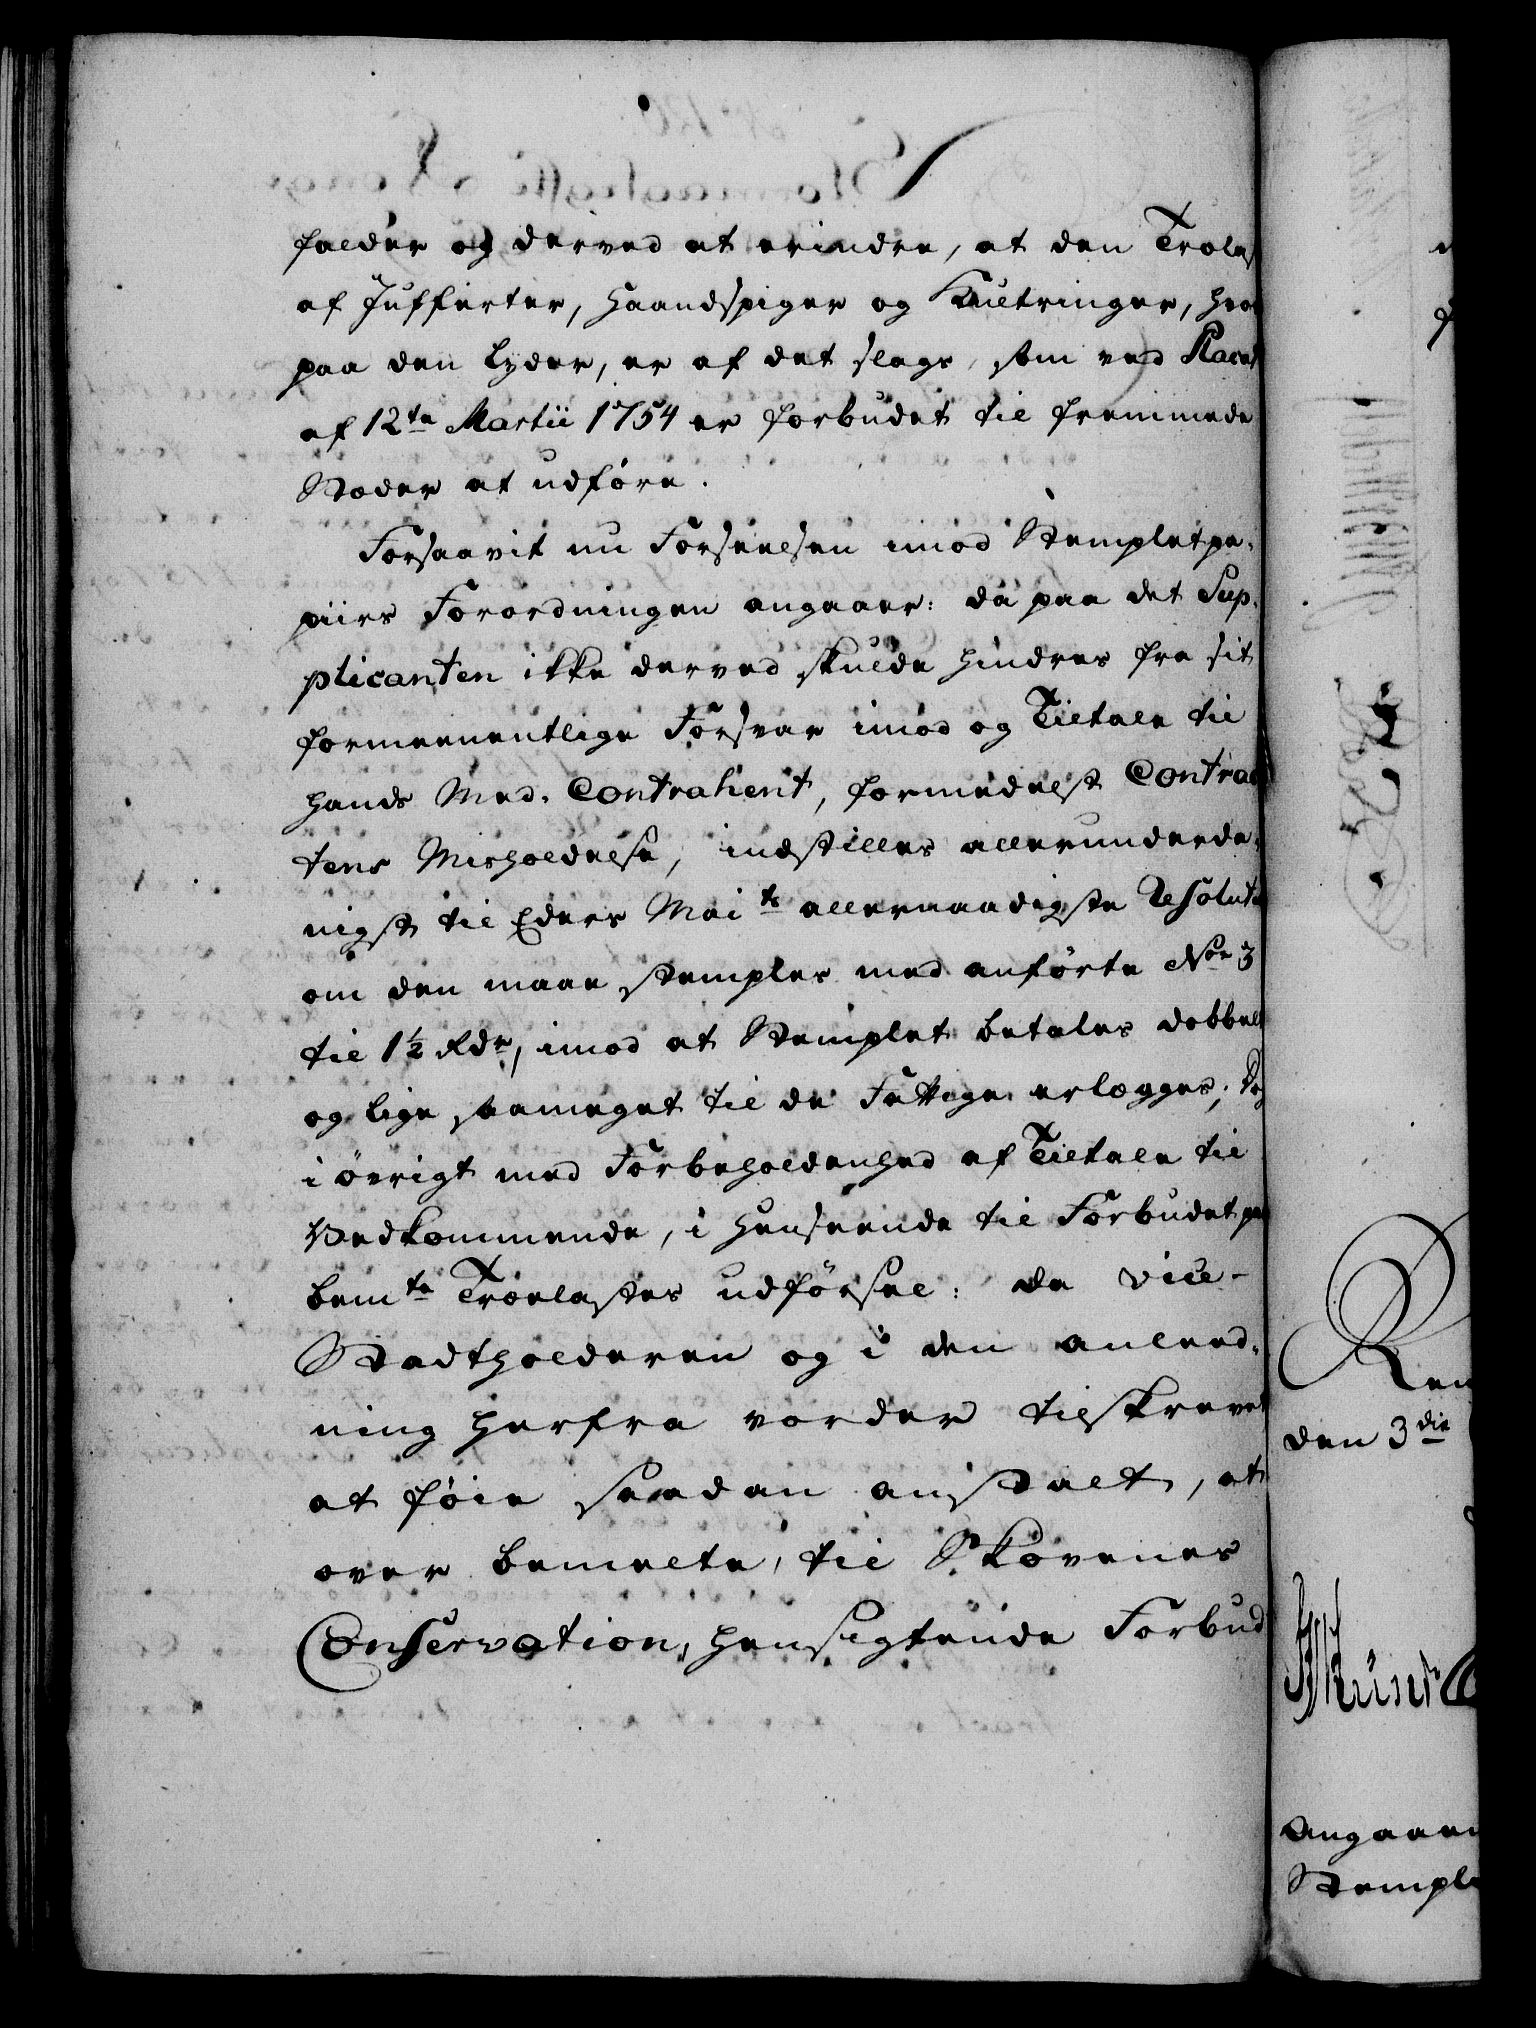 falder og derved at erindre, at den Trælas
af Jufferter, Haandspiger og Knetringer, hvor
paa den lyder, er af det slags, som ved Placat
af 12te Martii 1754 er forbudet til fremmede
Stæder at udføre.
Forsaavit nu Forseelsen imod Stempletpa-
piirs Forordningen angaaer: da paa det Sup-
plicanten ikke derved skulde hindres fra sit
formeenentlige Forsvar imod og Tiltale til
hands Med-Contrahent, formedelst Contrac
tens Misholdelse, indstilles allerunderda-
nigst til Eders Maits allernaadigste Resoluti
om den maae stemples med anførte No 3
til 1½ Rdr, imod at Stemplet betales dobbelt
og lige saameget til de Fattige erlægges, dog
i øvrigt med Forbeholdenhed af Tiltale til
Vedkommende, i Henseende til Forbudet paa
bemte Trælastes udførsel: da Vice-
Stadtholderen og i den anleed-
ning herfra vorder tilskrevet
at føie saadan anstalt, at
over bemelte, til Skovenes
Conservation, hensigtende Forbud
den 3die
Angaaen
Stemple